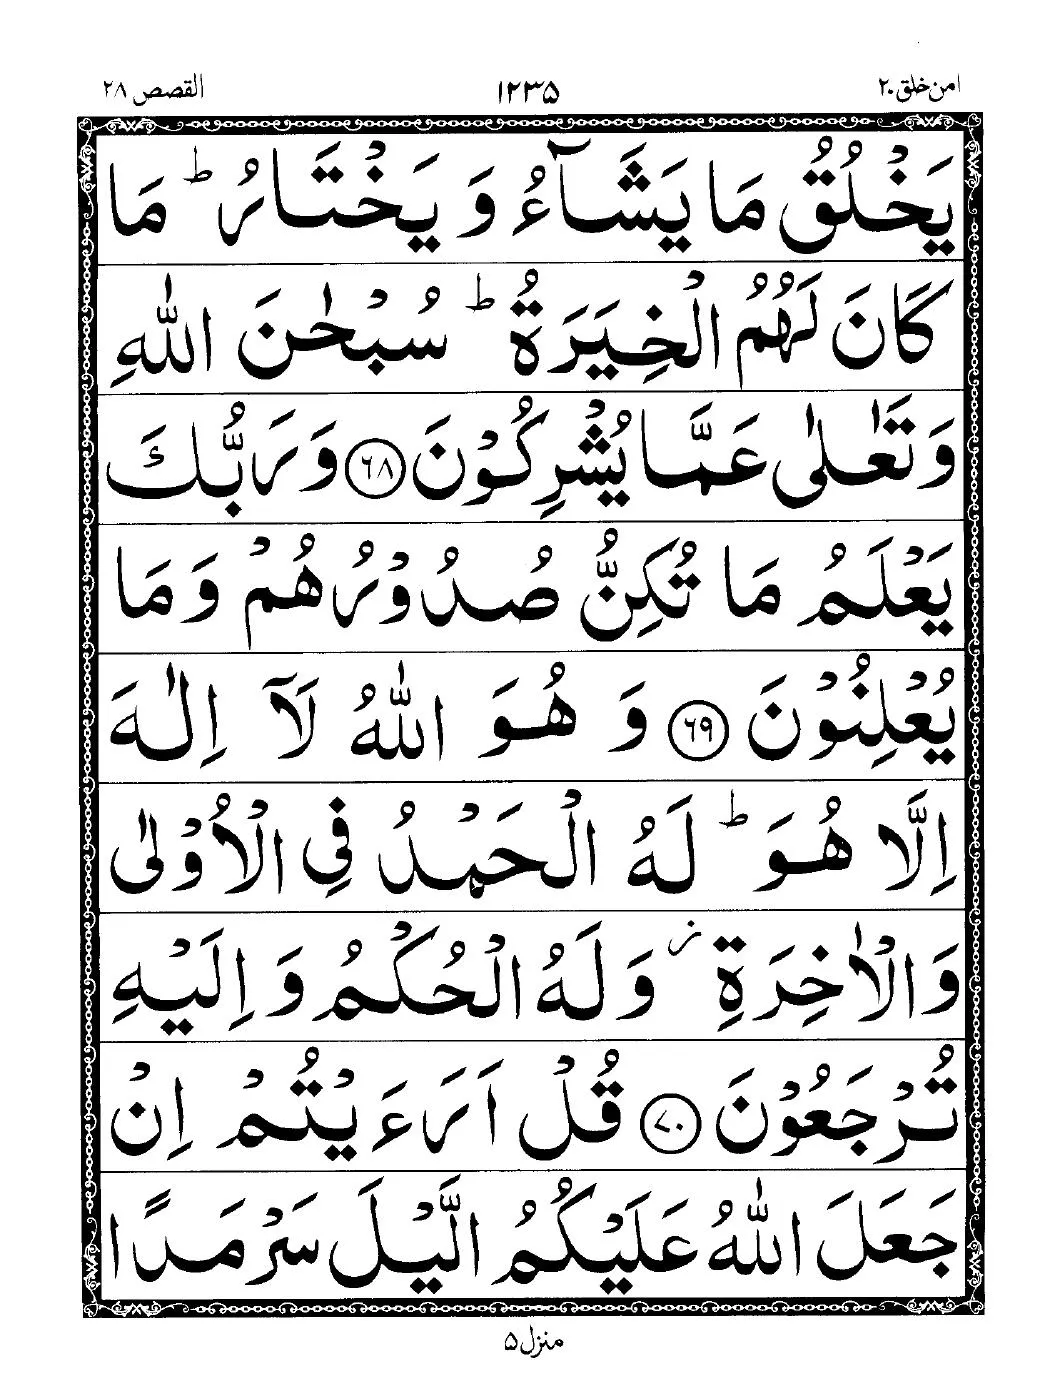 امن خلق ۲۰
۱۲۳۵
القصص ۲۸
يَخْلُقُ مَا يَشَآءُ وَ يَخْتَارُ ؕ مَا
كَانَ لَهُمُ الْخِيَرَةُ ؕ سُبْحٰنَ اللّٰهِ
وَ تَعٰلٰى عَمَّا يُشْرِكُوْنَ ۶۸ وَ رَبُّكَ
يَعْلَمُ مَا تُكِنُّ صُدُوْرُهُمْ وَ مَا
يُعْلِنُوْنَ ۶۹ وَ هُوَ اللّٰهُ لَاۤ اِلٰهَ
اِلَّا هُوَ ؕ لَهُ الْحَمْدُ فِي الْاُوْلٰى
وَ الْاٰخِرَةِ ز وَ لَهُ الْحُكْمُ وَ اِلَيْهِ
تُرْجَعُوْنَ ۷۰ قُلْ اَرَءَيْتُمْ اِنْ
جَعَلَ اللّٰهُ عَلَيْكُمُ الَّيْلَ سَرْمَدًا
منزل ۵